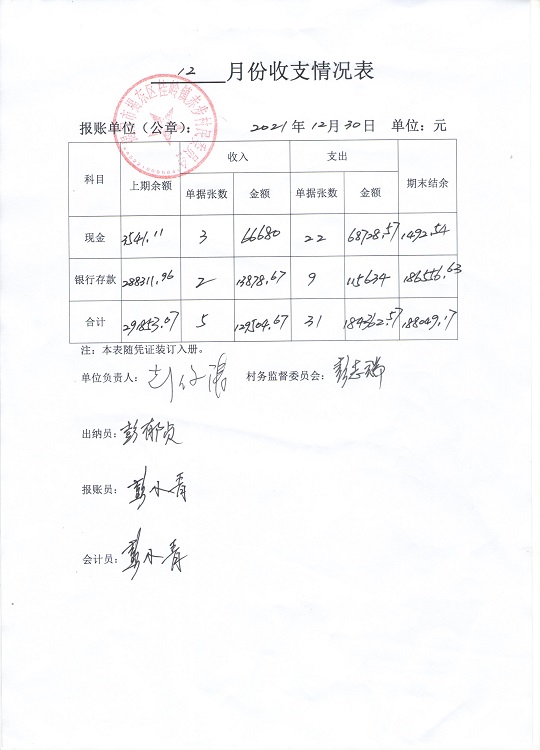 市揭东区桂岭镇赤步村民委员会
12 月份收支情况表
报账单位（公章）： 2021 年 12 月 30 日 单位：元
科目 上期余额 收入 支出 期末结余
单据张数 金额 单据张数 金额
现金 3541.11 3 66680 22 68728.57 1492.54
银行存款 288311.96 2 13878.67 9 115634 186556.63
合计 291853.07 5 129504.67 31 184362.57 188049.17
注：本表随凭证装订入册。
单位负责人： 村务监督委员会：彭志
出纳员：彭郁贞
报账员：彭小青
会计员：彭小青